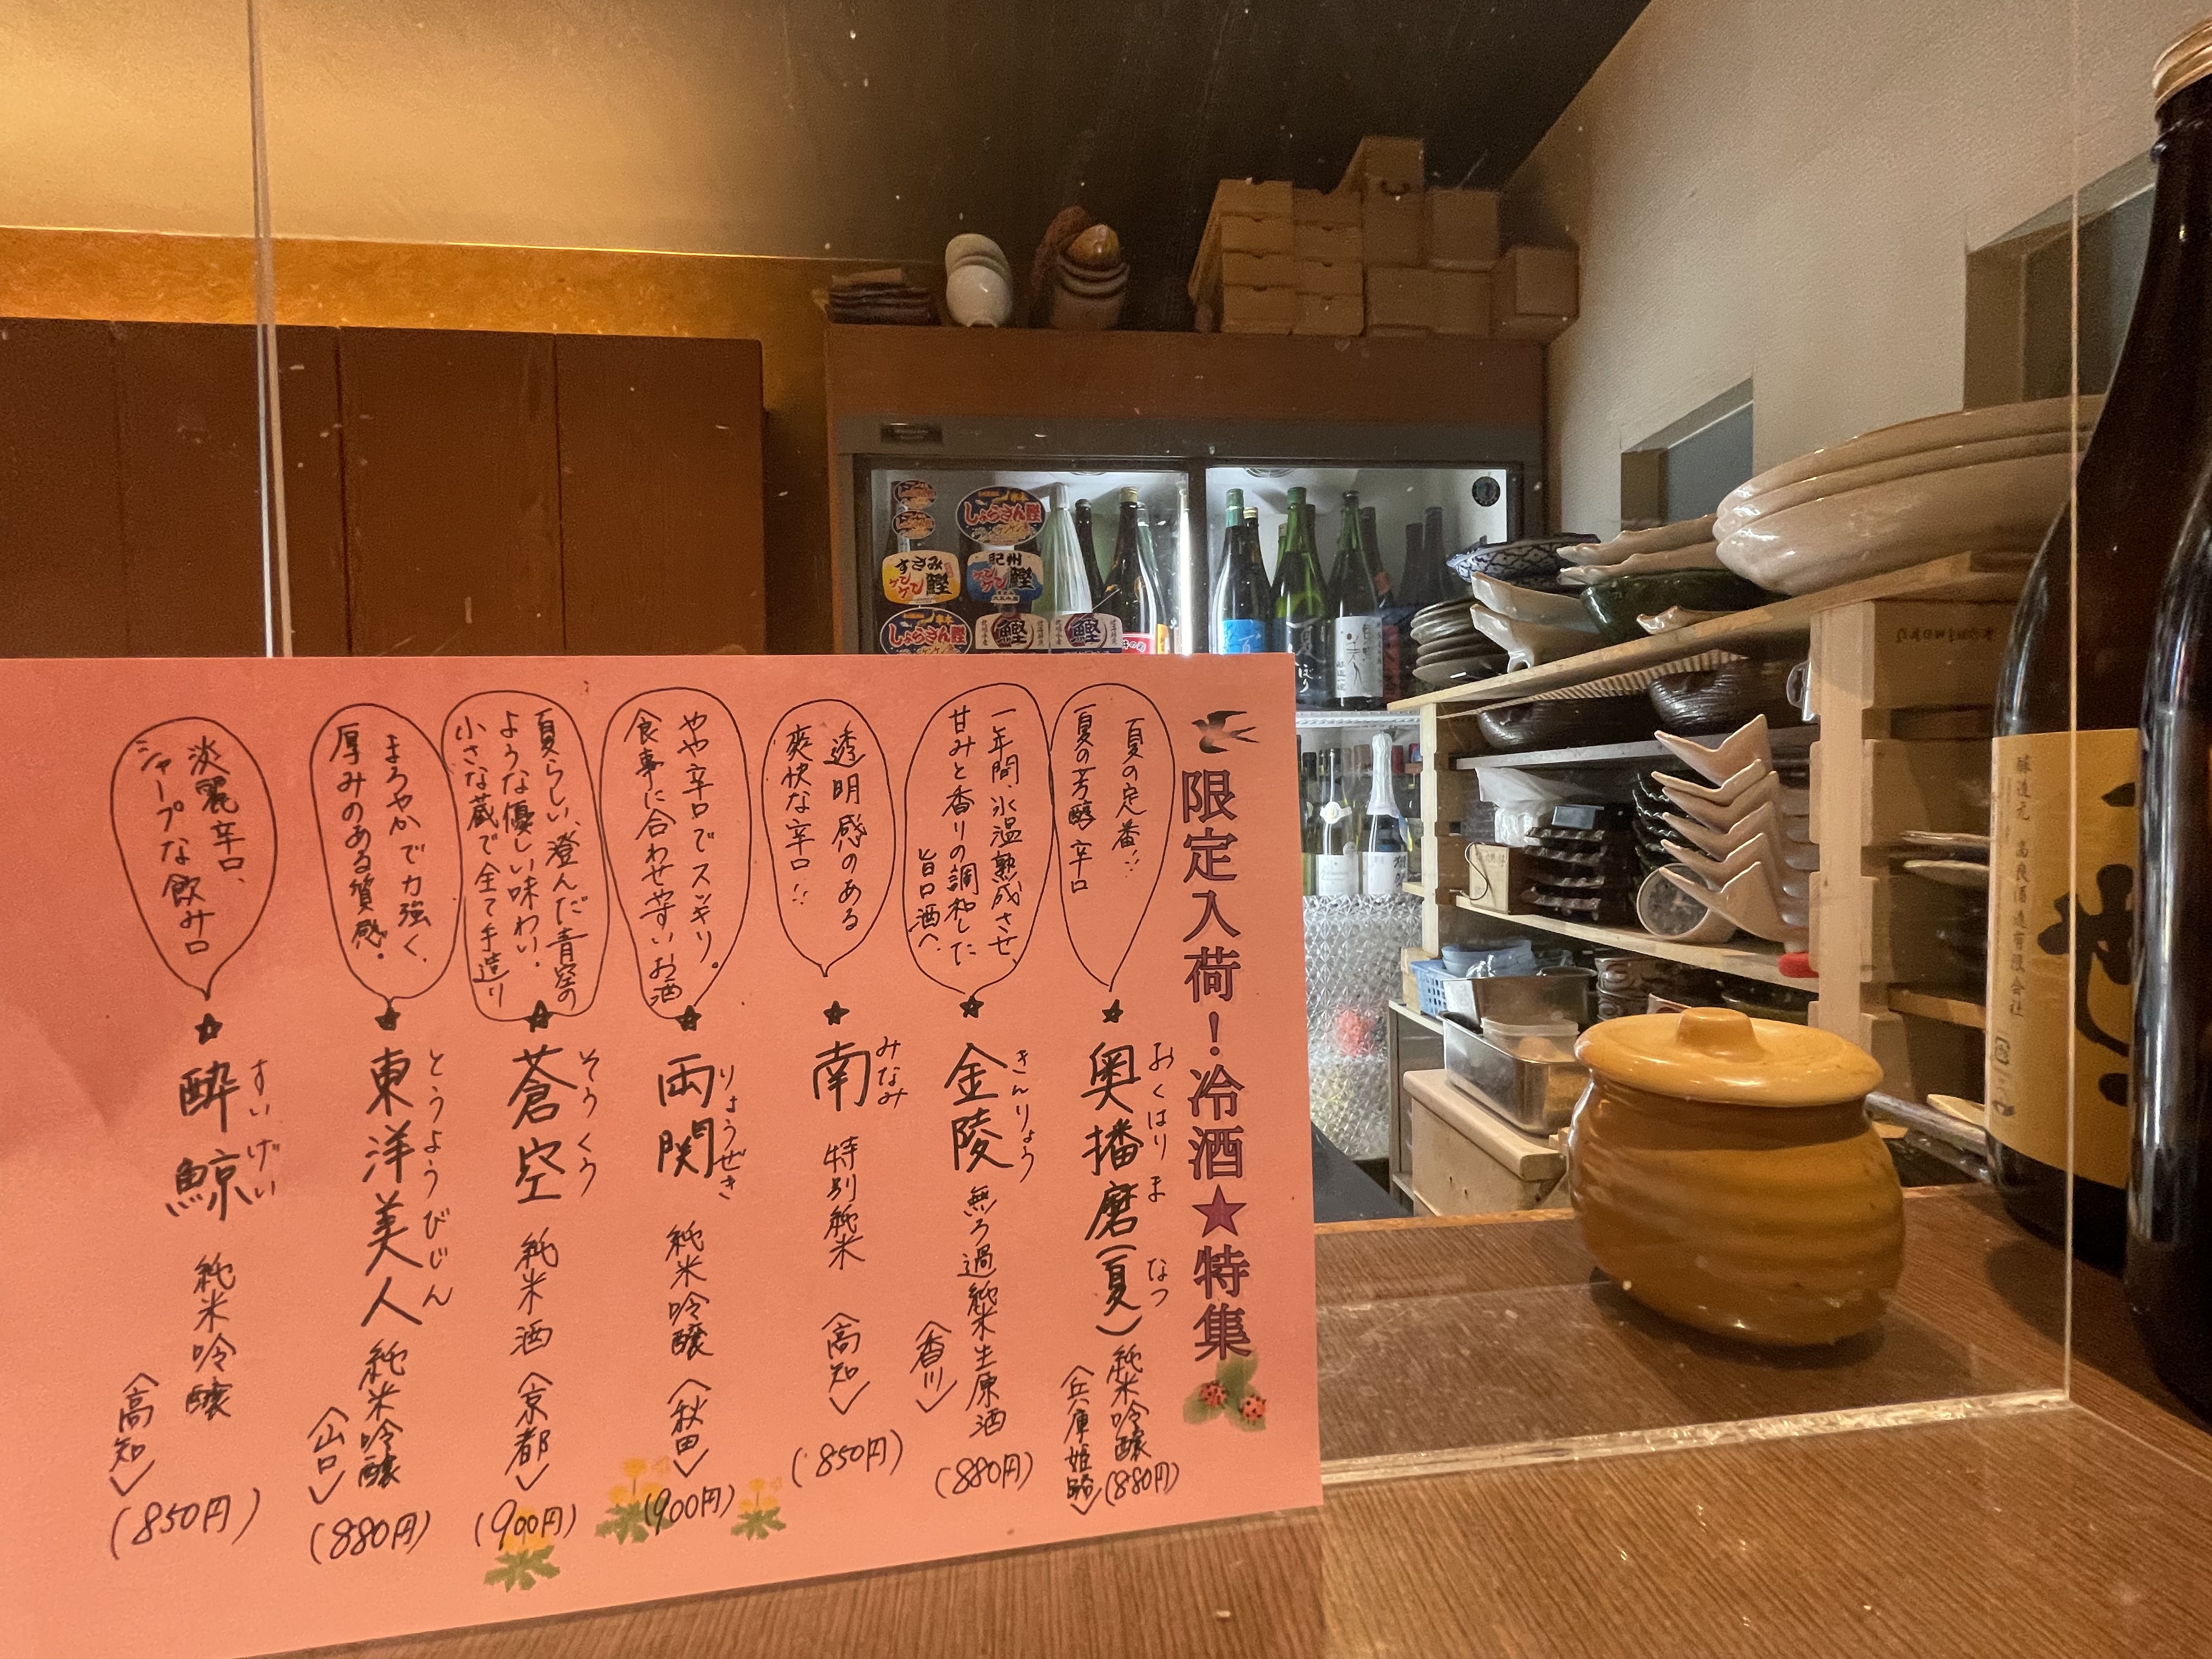 限定入荷！冷酒★特集
夏の定番!!
夏の芳醇辛口
★奥播磨(夏)純米吟醸
おくはりま なつ
〈兵庫姫路〉
(880円)
一年間、氷温熟成させ、
甘みと香りの調和した
旨口酒へ。
★金陵 無ろ過純米生原酒
きんりょう
〈香川〉
(880円)
透明感のある
爽快な辛口!!
★南 特別純米 〈高知〉
みなみ
(850円)
やや辛口でスッキリ。
食事に合わせやすいお酒
★両関 純米吟醸 〈秋田〉
りょうぜき
(900円)
夏らしい、澄んだ青空の
ような優しい味わい。
小さな蔵で全て手造り
★蒼空 純米酒 〈京都〉
そうくう
(900円)
まろやかで力強く、
厚みのある質感。
★東洋美人 純米吟醸
とうようびじん
〈山口〉
(880円)
淡麗辛口、
シャープな飲み口
★酔鯨 純米吟醸
すいげい
〈高知〉
(850円)
しょらさん鰹
すさみ
ケンケン鰹
紀州
ケンケン鰹
しょらさん鰹
鰹
鰹
夏
醸造元 高良酒造有限会社